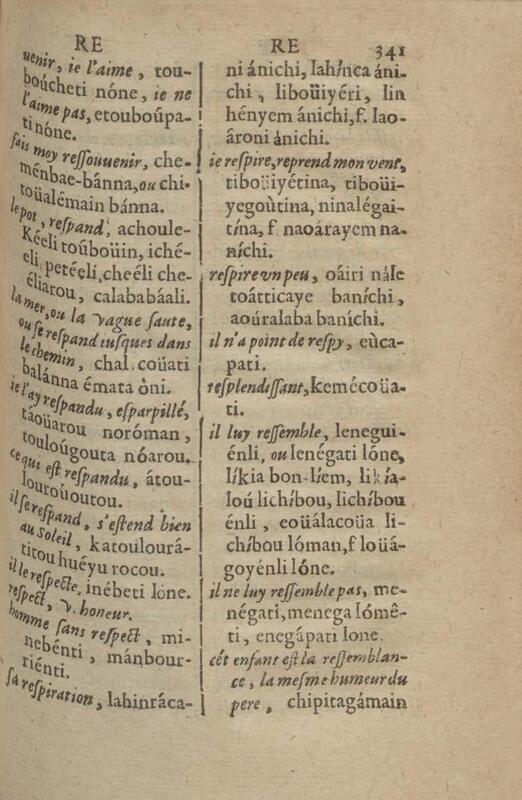 RE
uenir, ie l'aime, tou-
boúcheti nóne, ie ne
l'aime pas, etouboúpa-
ti nóne.
fais moy ressouuenir, che-
ménbae-bánna, ou chi-
toüalémain bánna.
le pot, respand, achoule-
Kéeli toûboüin, iché-
eli, petéçli, cheéli che-
éliarou, calababáali.
la mer, ou la vague saute,
ou se respand iusques dans
le chemin, chal coüati
balánna émata òni.
ie l'ay respandu, esparpillé,
táoüarou noróman,
touloúgouta nóarou.
ce qui est respandu, átou-
lourououtou.
il se respand, s'estend bien
au soleil, katoulourá-
titou huéyu rocou.
il le respecte, inébeti lone.
respect, v. honeur.
homme sans respect, mi-
nebénti, mánbour-
riénti.
sa respiration, lahinráca-
RE 341
ni ánichi, lahínca áni-
chi, liboüiyéri, lin
hényem ánichi, f. lao-
ároni ánichi.
ie respire, reprend mon vent,
tiboüiyétina, tiboüi-
yegoùtina, ninalégai-
tína, f. naoárayem na-
níchi.
respire vn peu, oáiri nále
toátticaye baníchi,
aoúralaba baníchi.
il n'a point de respy, eùca-
pati.
resplendissant, kemécoüa-
ti.
il luy ressemble, lenegui-
énli, ou lenégati lóne,
líkia bon-líem, likía-
loú lichíbou, lichíbou
énli, eoüálacoüa li-
chíbou lóman, f loüá-
goyénli lóne.
il ne luy ressemble pas, me-
négati, menega lómê-
ti, enegápati lone.
cét enfant est la ressemblan-
ce, la mesme humeur du
pere, chipitagámain